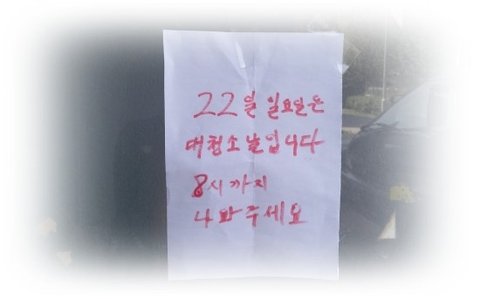 22일 일요일은
대청소날입니다
8시까지
나와주세요